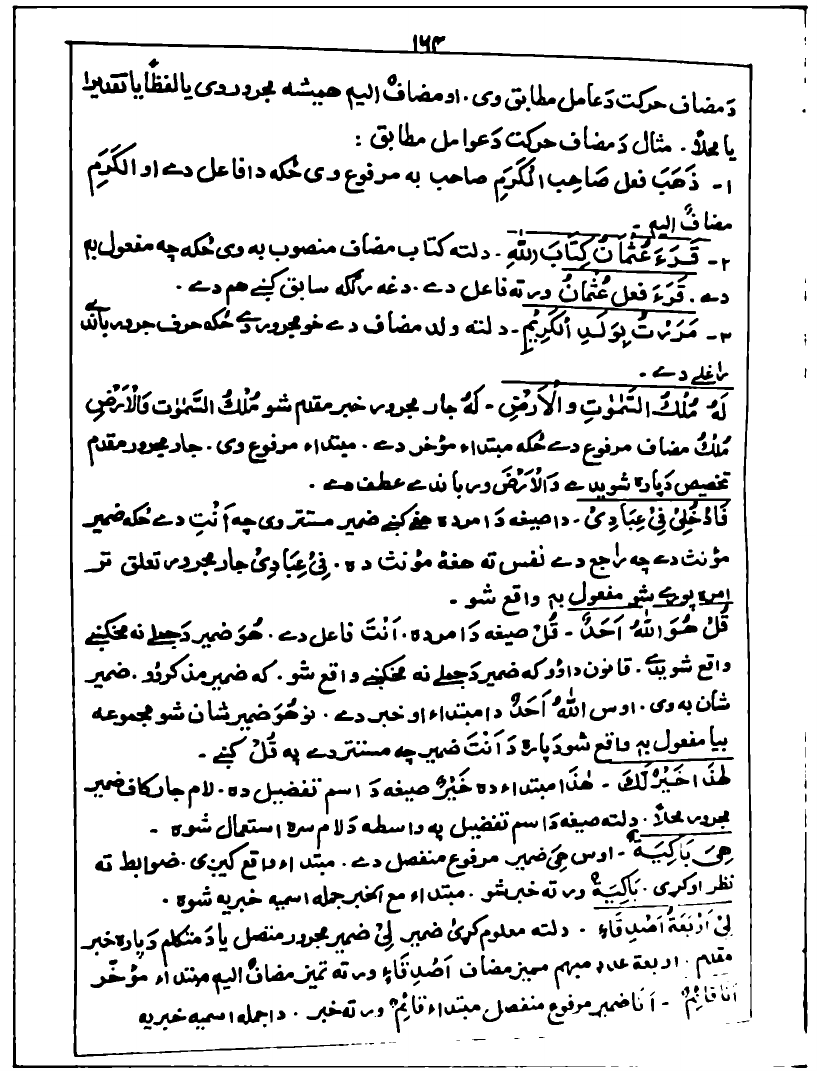 ۱۶۳
دَ مضاف حرکت دَ عامل مطابق وی. او مضافٌ الیہ همیشه مجرور وی یا لفظاً یا تقدیرا
یا محلاً. مثال دَ مضاف حرکت دَ عوامل مطابق:
۱- ذَهَبَ فعل صَاحِبُ الْكَرَمِ صاحب به مرفوع وی ځکه دا فاعل دے او الْكَرَمِ
مضافٌ الیہ.
۲- قَرَءَ عُثْمَانُ كِتَابَ اللّٰهِ. دلته کتاب مضاف منصوب به وی ځکه چه مفعول بہ
دے. قَرَءَ فعل عُثْمَانُ ورته فاعل دے. دغه رنګه سابق کښے هم دے.
۳- مَرَرْتُ بِوَلَدِ الْكَرِيْمِ- دلته ولد مضاف دے خو مجرور دے ځکه حرف جرور باندے
راغلے دے.
لَهُ مُلْكُ السَّمٰوٰتِ وَالْاَرْضِ- لَهُ جار مجرور خبر مقدم شو مُلْكُ السَّمٰوٰت وَالْاَرْضِ
مُلْكُ مضاف مرفوع دے ځکه مبتداء مؤخر دے. مبتداء مرفوع وی. جار مجرور مقدم
تخصیص دَپاره شویدے وَالْاَرْضَ ور باندے عطف دے.
فَادْخُلِيْ فِيْ عِبَادِيْ- دا صیغه دَ امر ده هغے کښے ضمیر مستتر وی چه اَنْتِ دے ځکه ضمیر
مؤنث دے چه راجع دے نفس ته هغه مؤنث ده. فِيْ عِبَادِيْ جار مجرور تعلق تر
امره پورے شو مفعول بہ واقع شو.
قُلْ هُوَ اللّٰهُ اَحَدٌ- قُلْ صیغه دَ امر ده. اَنْتَ فاعل دے. هُوَ ضمیر دَ جملے نه مخکښے
واقع شویدے. قانون دا ؤو که ضمیر دَ جملے نه مخکښے واقع شو. که ضمیر مذکر ؤو. ضمیر
شان به وی. اوس اللّٰهُ اَحَدٌ دا مبتداء او خبر دے. نو هُوَ ضمیر شان شو مجموعه
بیا مفعول بہ واقع شو دَپاره دَ اَنْتَ ضمیر چه مستتر دے په قُلْ کښے.
هٰذَا خَيْرٌ لَّكَ- هٰذَا مبتداء ده خَيْرٌ صیغه دَ اسم تفضیل ده. لام جار کاف ضمیر
مجرور محلاً. دلته صیغه دَ اسم تفضیل په واسطه دَ لام سره استعمال شوه-
هِيَ بَاكِيَةٌ- اوس هِيَ ضمیر مرفوع منفصل دے. مبتداء واقع کیږی. ضوابط ته
نظر اوکړی. بَاكِيَةٌ ورته خبر شو. مبتداء مع الخبر جمله اسمیه خبریه شوه.
لِيْ اَرْبَعَةُ اَصْدِقَاءٍ. دلته معلوم کړئ ضمیر لِيْ ضمیر مجرور متصل یا دَ متکلم دَپاره خبر
مقدم. اربعة عدد مبهم ممیز مضاف اَصْدِقَاءٍ ورته تمیز مضافٌ الیہ مبتداء مؤخّر
اَنَا قَائِمٌ- اَنَا ضمیر مرفوع منفصل مبتداء قَائِمٌ ورته خبر. دا جمله اسمیه خبریه